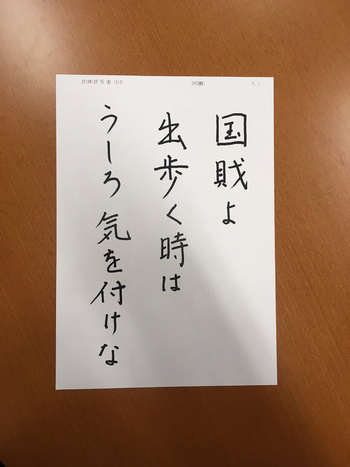 国賊よ
出歩く時は
うしろ気を付けな